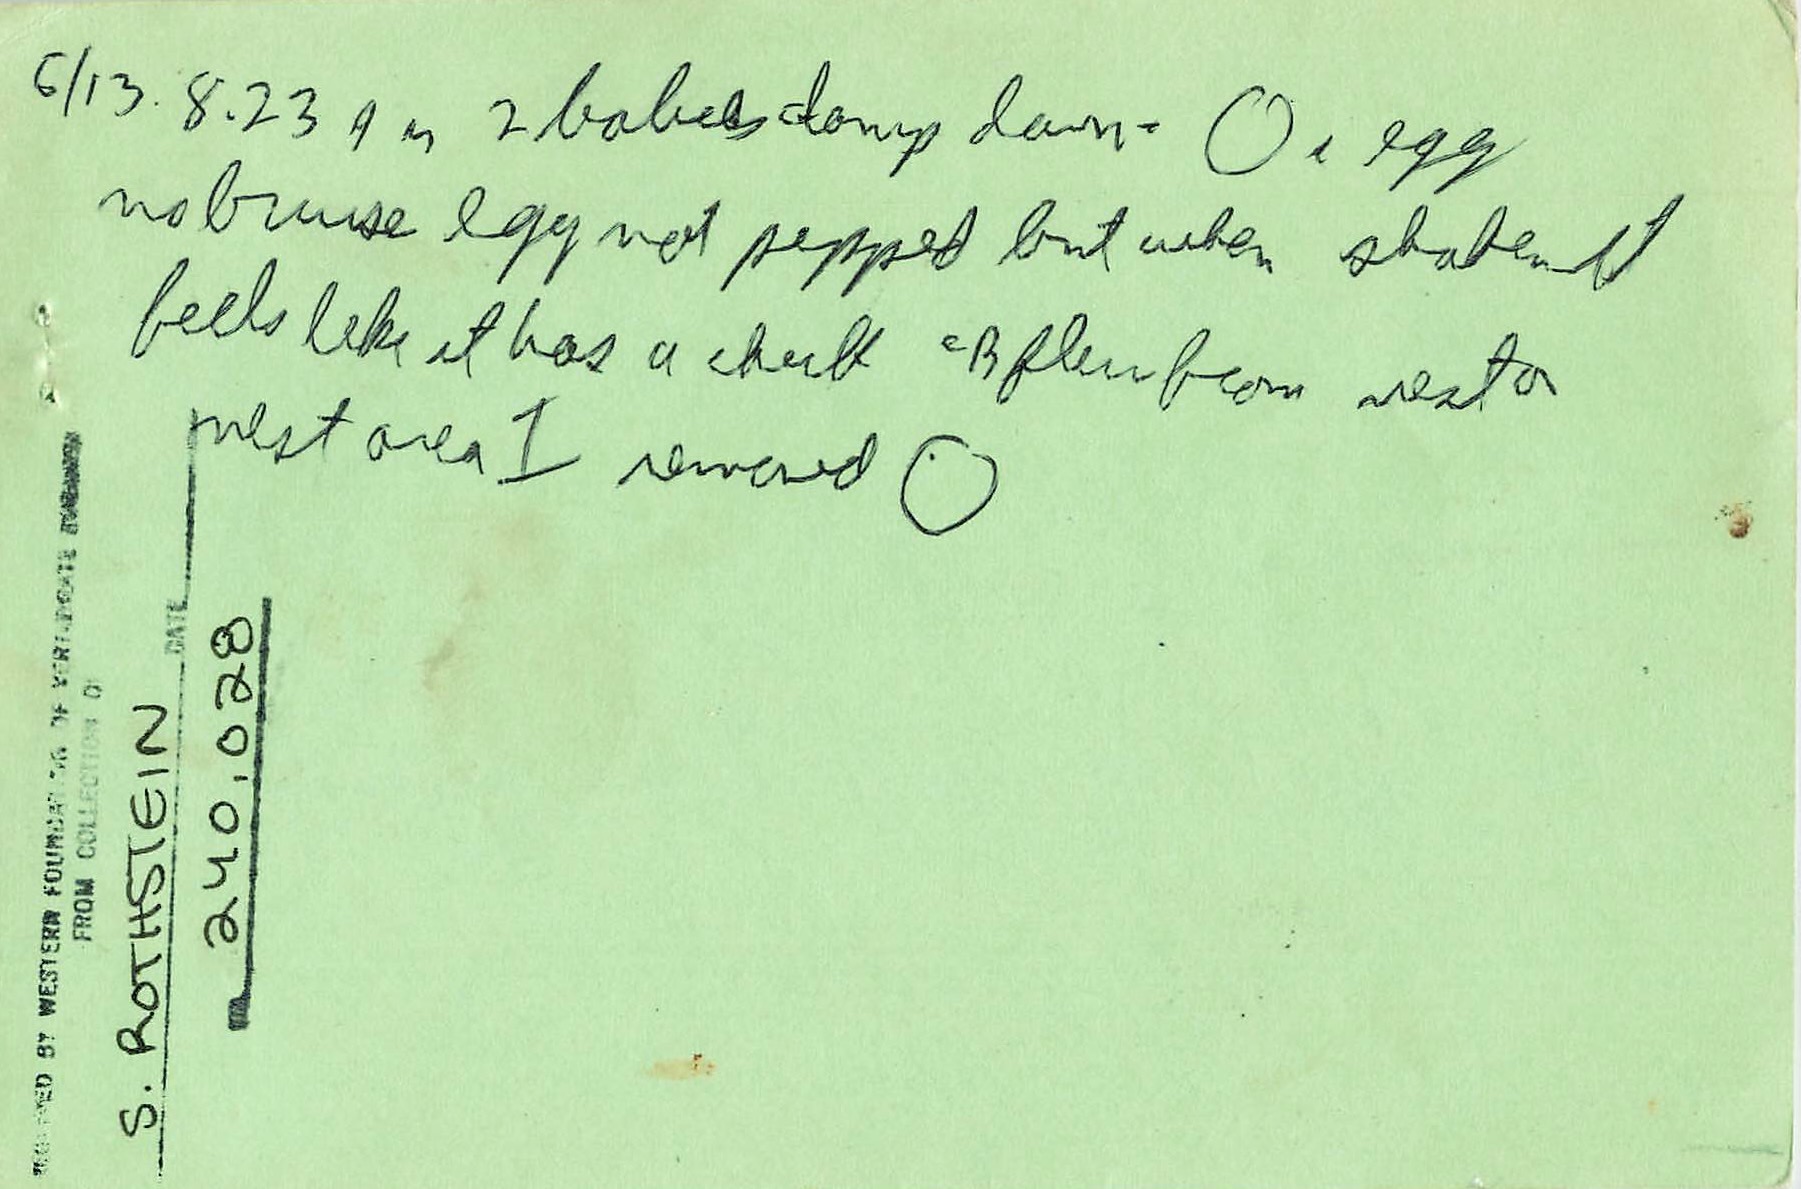 6/13. 8.23 AM 2 babies damp down - O 1 egg
no bruise egg not pepped but when shaken it
feels like it has a chick flew from nest or
nest area I removed O
RECEIVED BY WESTERN FOUNDATION OF VERTEBRATE
FROM COLLECTION OF
S. ROTHSTEIN
DATE
240,028